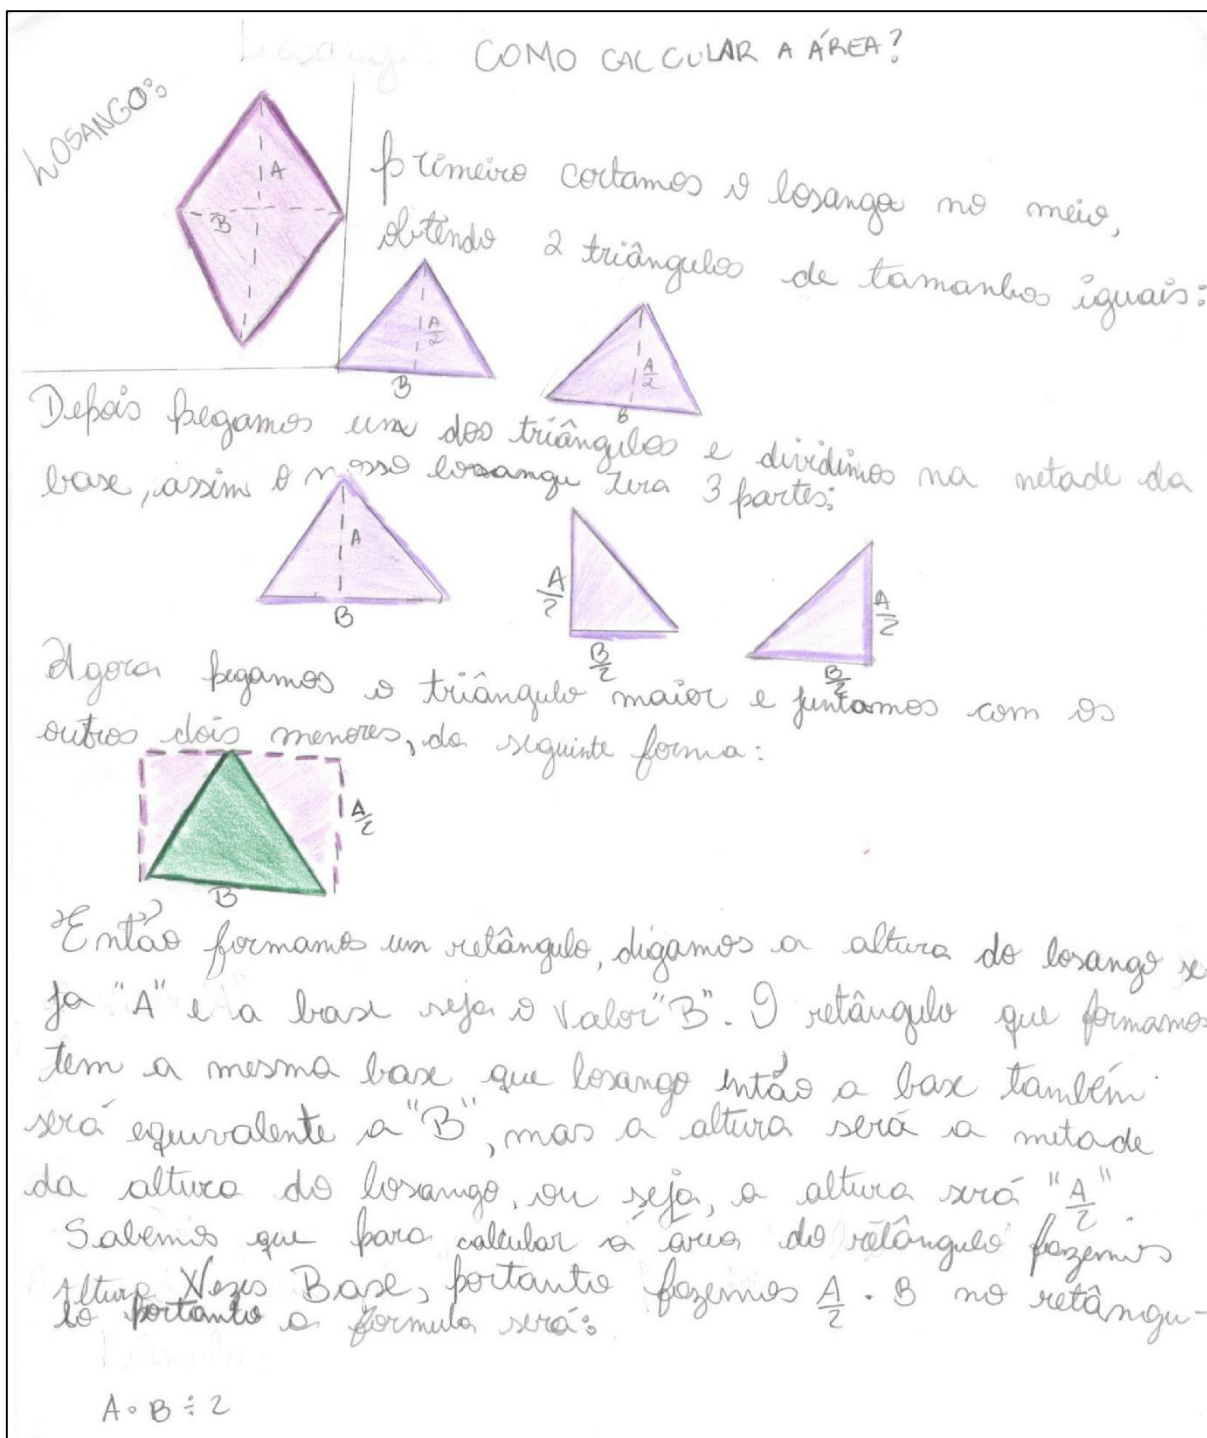 COMO CALCULAR A ÁREA?
LOSANGO:
A
B
Primeiro cortamos o losango no meio,
obtendo 2 triângulos de tamanhos iguais:
A/2
B
A/2
B
Depois pegamos um dos triângulos e dividimos na metade da
base, assim o nosso losangu tera 3 partes:
A
B
A/2
B/2
A/2
B/2
Agora pegamos o triângulo maior e juntamos com os
outros dois menores, da seguinte forma:
A/2
B
Então formamos um retângulo, digamos a altura do losango se
ja "A" e a base seja o valor "B". O retângulo que formamos
tem a mesma base que losango então a base também
será equivalente a "B", mas a altura será a metade
da altura do losango, ou seja, a altura será "A/2"
Sabemos que para calcular a área do retângulo fazemos
Altura Vezes Base, portanto fazemos A/2 . B no retângu-
lo portanto a formula será:
A . B ÷ 2